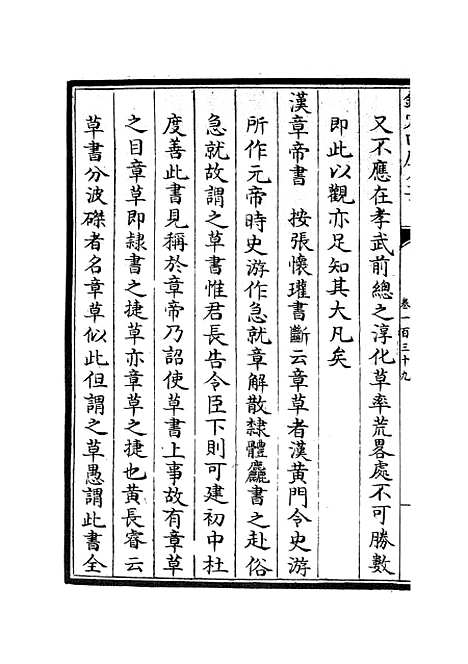 卷一百三十九
又不應在孝武前總之淳化草率荒畧處不可勝數
即此以觀亦足知其大凡矣
漢章帝書 按張懷瓘書斷云章草者漢黃門令史游
所作元帝時史游作急就章解散隸體麤書之赴俗
急就故謂之草書惟君長告令臣下則可建初中杜
度善此書見稱於章帝乃詔使草書上事故有章草
之目章草即隸書之捷草亦章草之捷也黃長睿云
草書分波磔者名章草似此但謂之草愚謂此書全